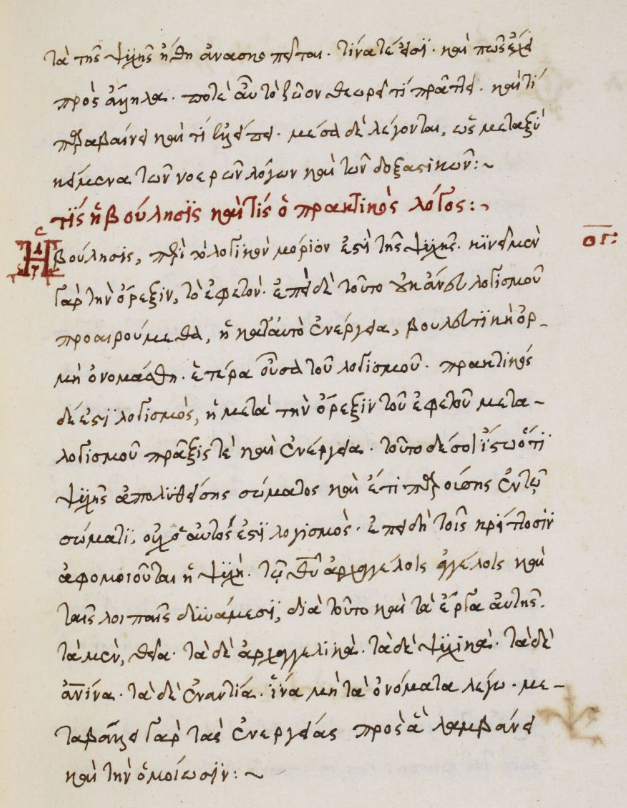 τὰ τῆς ψυχῆς ἤθη ἀνασπηρεται· τίνα τέ ἐστι· καὶ πῶς ἔχει
πρὸς ἄλληλα· ποτὲ ἂν τὸ ζῶον θεωρεῖ τί πράττει· καὶ τί
παραβαίνει καὶ τί βλέπει· μέσα δὲ λέγονται, ὡς μεταξὺ
κείμενα τῶν νοερῶν λόγων καὶ τῶν δοξαστικῶν:~
τίς ἡ βούλησις καὶ τίς ὁ πρακτικὸς λόγος:~
Ἡ βούλησις, περὶ τὸ λογικὸν μόριόν ἐστι τῆς ψυχῆς· κινεῖ μὲν
ογ:
γὰρ τὴν ὄρεξιν, τὸ ἐφετόν· ἐπεὶ δὲ τοῦτο οὐκ ἄνευ λογισμοῦ
προαιρούμεθα, ἡ κατ' αὐτὸ ἐνέργεια, βουλευτικὴ ὁρ-
μὴ ὀνομάσθη· ἑτέρα οὖσα τοῦ λογισμοῦ· πρακτικὸς
δέ ἐστι λογισμὸς, ἡ μετὰ τὴν ὄρεξιν τοῦ ἐφετοῦ μετα-
λογισμοῦ πρᾶξίς τε καὶ ἐνέργεια· τοῦτο δέ σοι ἴστω ὅτι
ψυχῆς ἀπολυθείσης σώματος καὶ ἔτι παροίσης ἐν τῷ
σώματι, οὐχ ὁ αὐτός ἐστι λογισμός· ἐπειδὴ τοῖς κρείττοσιν
ἀφομοιοῦται ἡ ψυχή· τῷ θεῷ ἀρχαγγέλοις ἀγγέλοις καὶ
ταῖς λοιπαῖς δυνάμεσι, διὰ τοῦτο καὶ τὰ ἔργα αὐτῆς·
τὰ μὲν, θεῖα· τὰ δὲ ἀρχαγγελικὰ· τὰ δὲ ψυχικὰ· τὰ δὲ
ἀνθρώπινα· τὰ δὲ ἐναντία· ἵνα μὴ τὰ ὀνόματα λέγω· με-
ταβάλλει γὰρ τὰς ἐνεργείας πρὸς ἃ λαμβάνει
καὶ τὴν ὁμοίωσιν:~